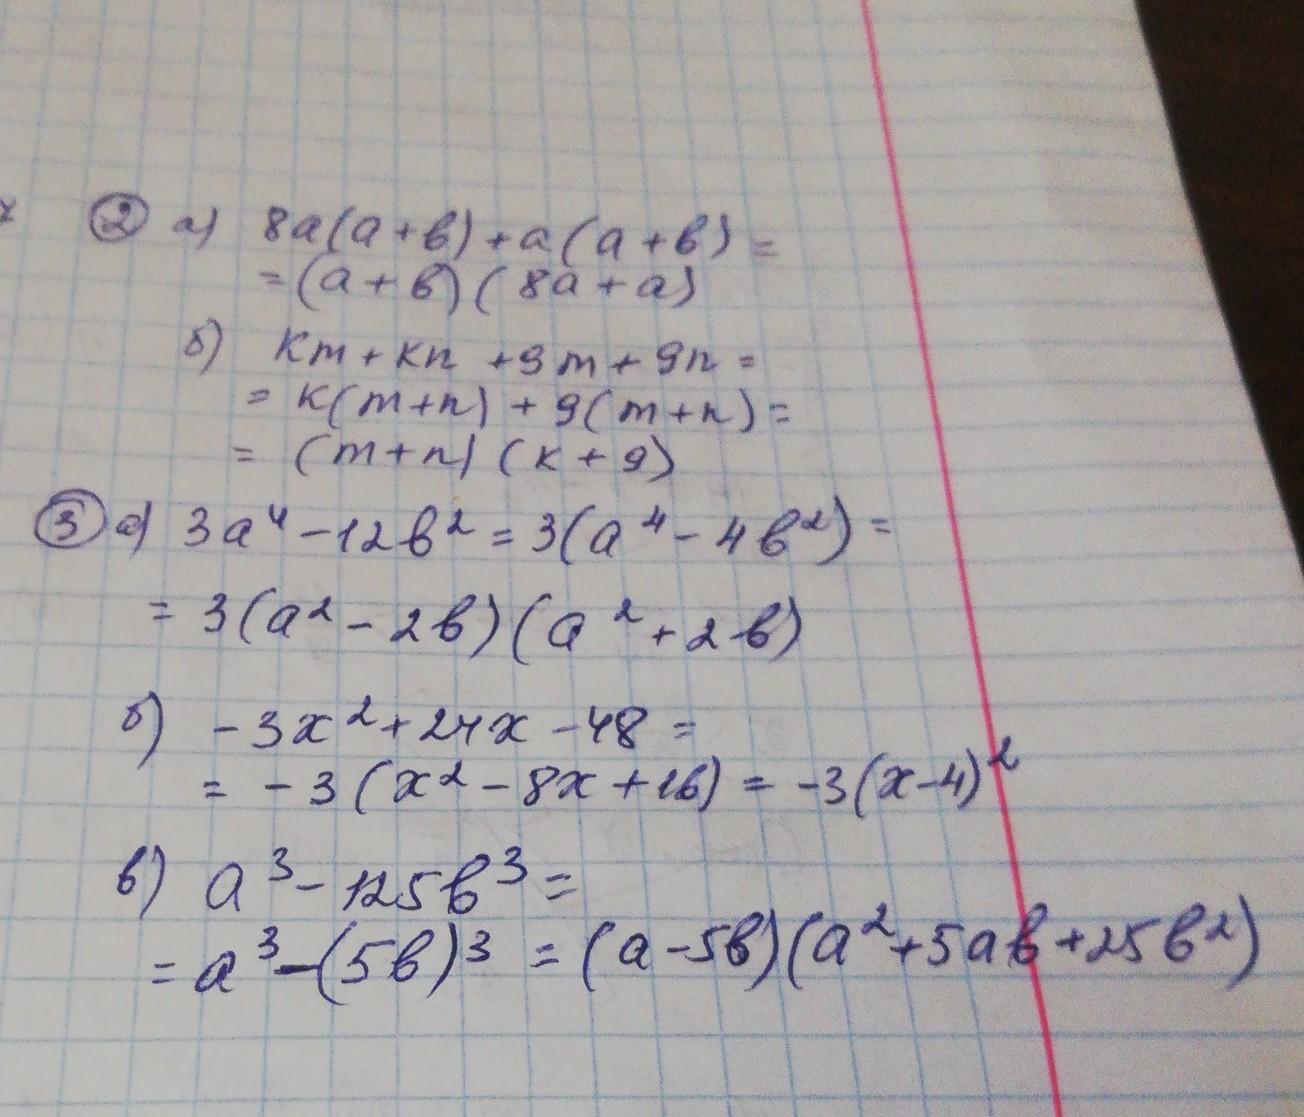 ② а) 8a(a+b)+a(a+b)=
=(a+b)(8a+a)
б) km+kn+9m+9n=
=k(m+n)+9(m+n)=
=(m+n)(k+9)
③ а) 3a⁴-12b²=3(a⁴-4b²)=
=3(a²-2b)(a²+2b)
б) -3x²+24x-48=
=-3(x²-8x+16)=-3(x-4)²
в) a³-125b³=
=a³-(5b)³=(a-5b)(a²+5ab+25b²)